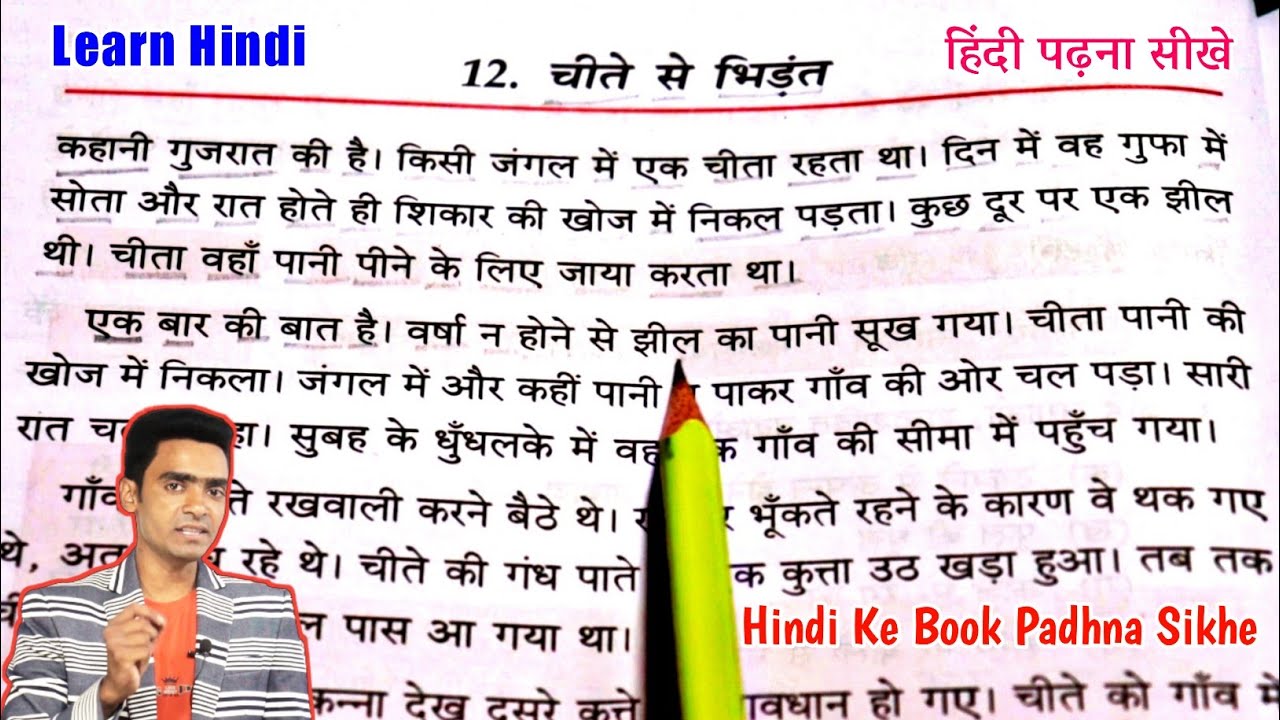 Learn Hindi
हिंदी पढ़ना सीखे
12. चीते से भिड़ंत
कहानी गुजरात की है। किसी जंगल में एक चीता रहता था। दिन में वह गुफा में
सोता और रात होते ही शिकार की खोज में निकल पड़ता। कुछ दूर पर एक झील
थी। चीता वहाँ पानी पीने के लिए जाया करता था।
एक बार की बात है। वर्षा न होने से झील का पानी सूख गया। चीता पानी की
खोज में निकला। जंगल में और कहीं पानी पाकर गाँव की ओर चल पड़ा। सारी
रात सुबह के धुँधलके में वह गाँव की सीमा में पहुँच गया।
रखवाली करने बैठे थे। भूँकते रहने के कारण वे थक गए
थे, रहे थे। चीते की गंध पाते कुत्ता उठ खड़ा हुआ। तब तक
पास आ गया था।
Hindi Ke Book Padhna Sikhe
देख दूसरे कुत्ते हो गए। चीते को गाँव में